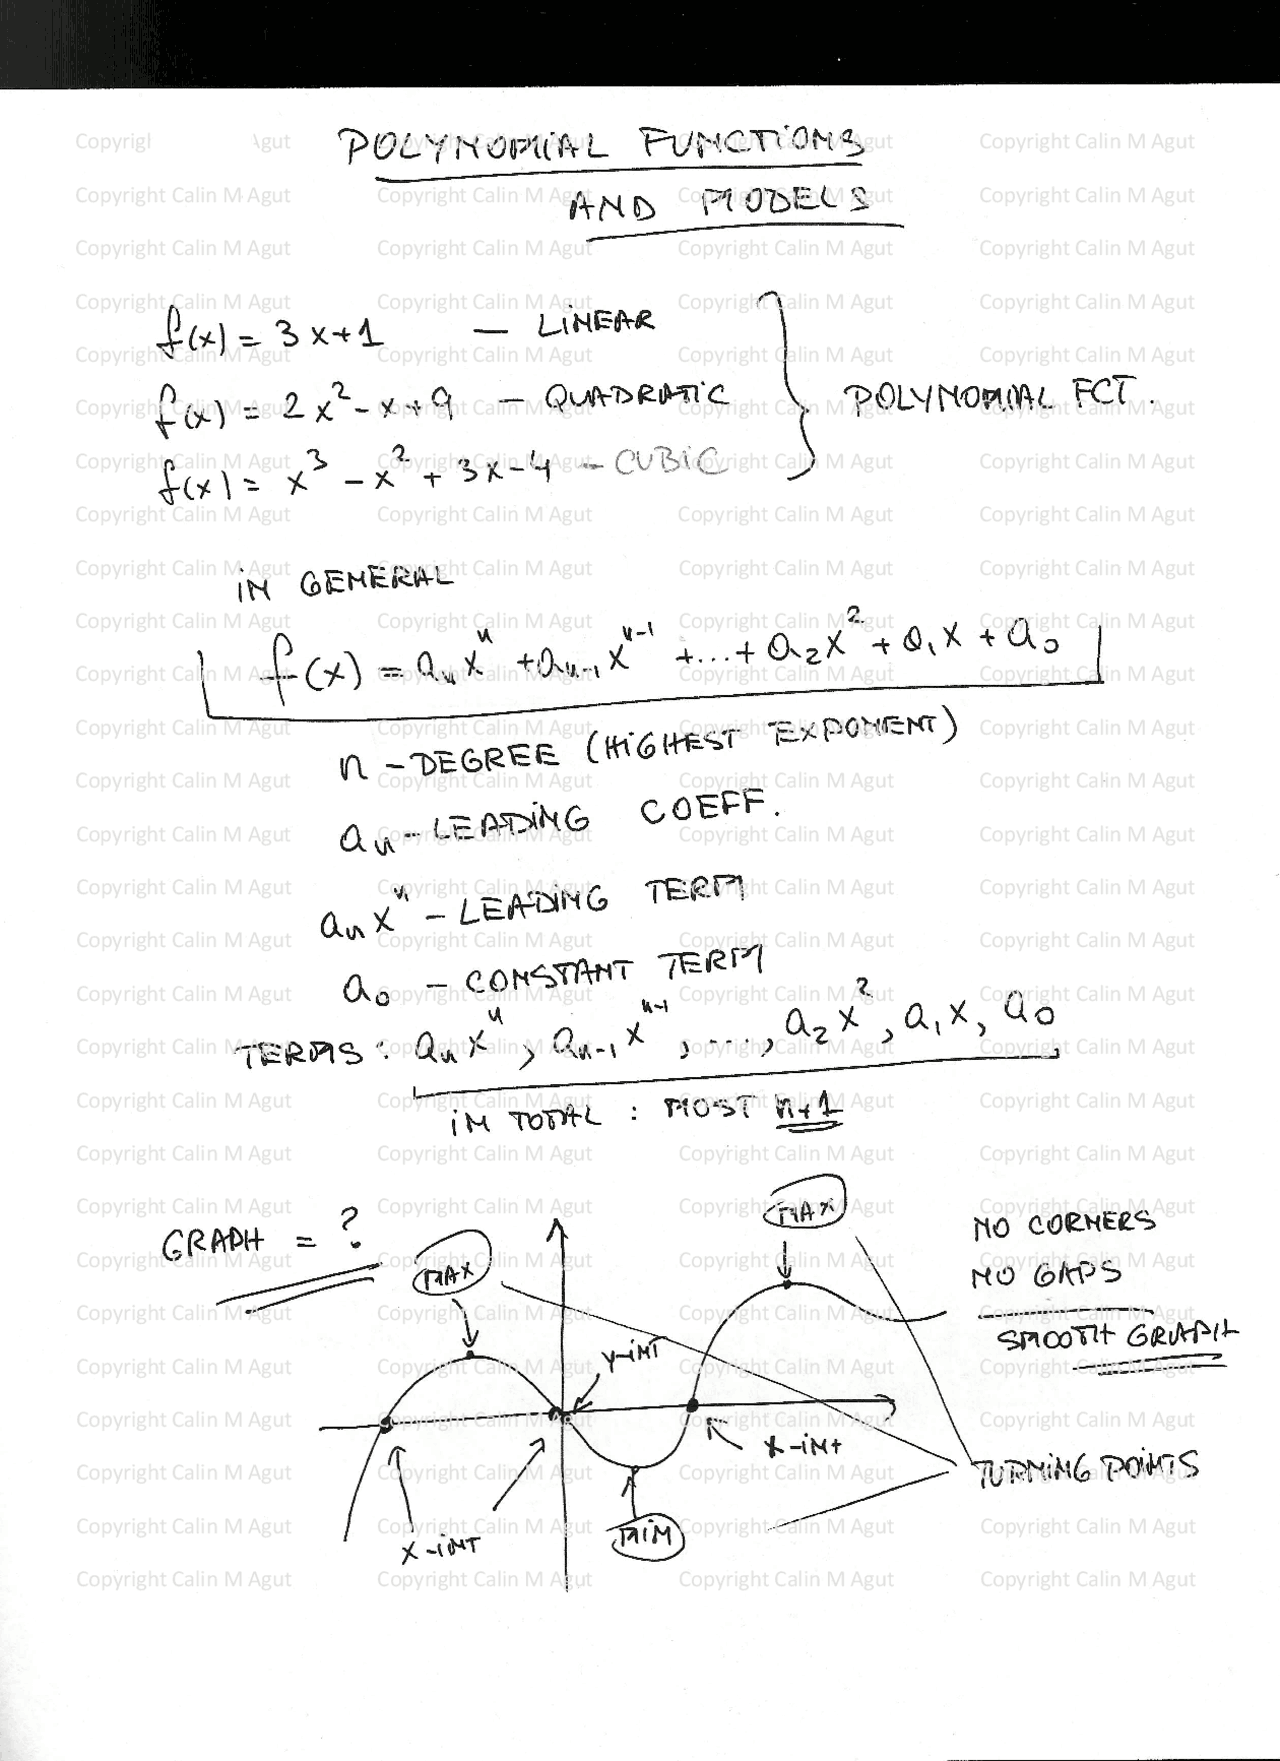 POLYNOMIAL FUNCTIONS
AND MODELS
f(x) = 3x+1 — LINEAR
f(x) = 2x² - x + 9 — QUADRATIC
f(x) = x³ - x² + 3x - 4 — CUBIC
POLYNOMIAL FCT.
IN GENERAL
f(x) = aₙxⁿ + aₙ₋₁xⁿ⁻¹ + ... + a₂x² + a₁x + a₀
n - DEGREE (HIGHEST EXPONENT)
aₙ - LEADING COEFF.
aₙxⁿ - LEADING TERM
a₀ - CONSTANT TERM
TERMS: aₙxⁿ, aₙ₋₁xⁿ⁻¹, ..., a₂x², a₁x, a₀
IN TOTAL : MOST n+1
GRAPH = ?
MAX
MAX
NO CORNERS
NO GAPS
SMOOTH GRAPH
Y-INT
X-INT
TURNING POINTS
X-INT
MIN
Copyright Calin M Agut